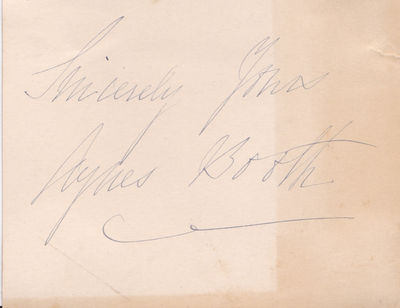 Sincerely Yours
Agnes Booth